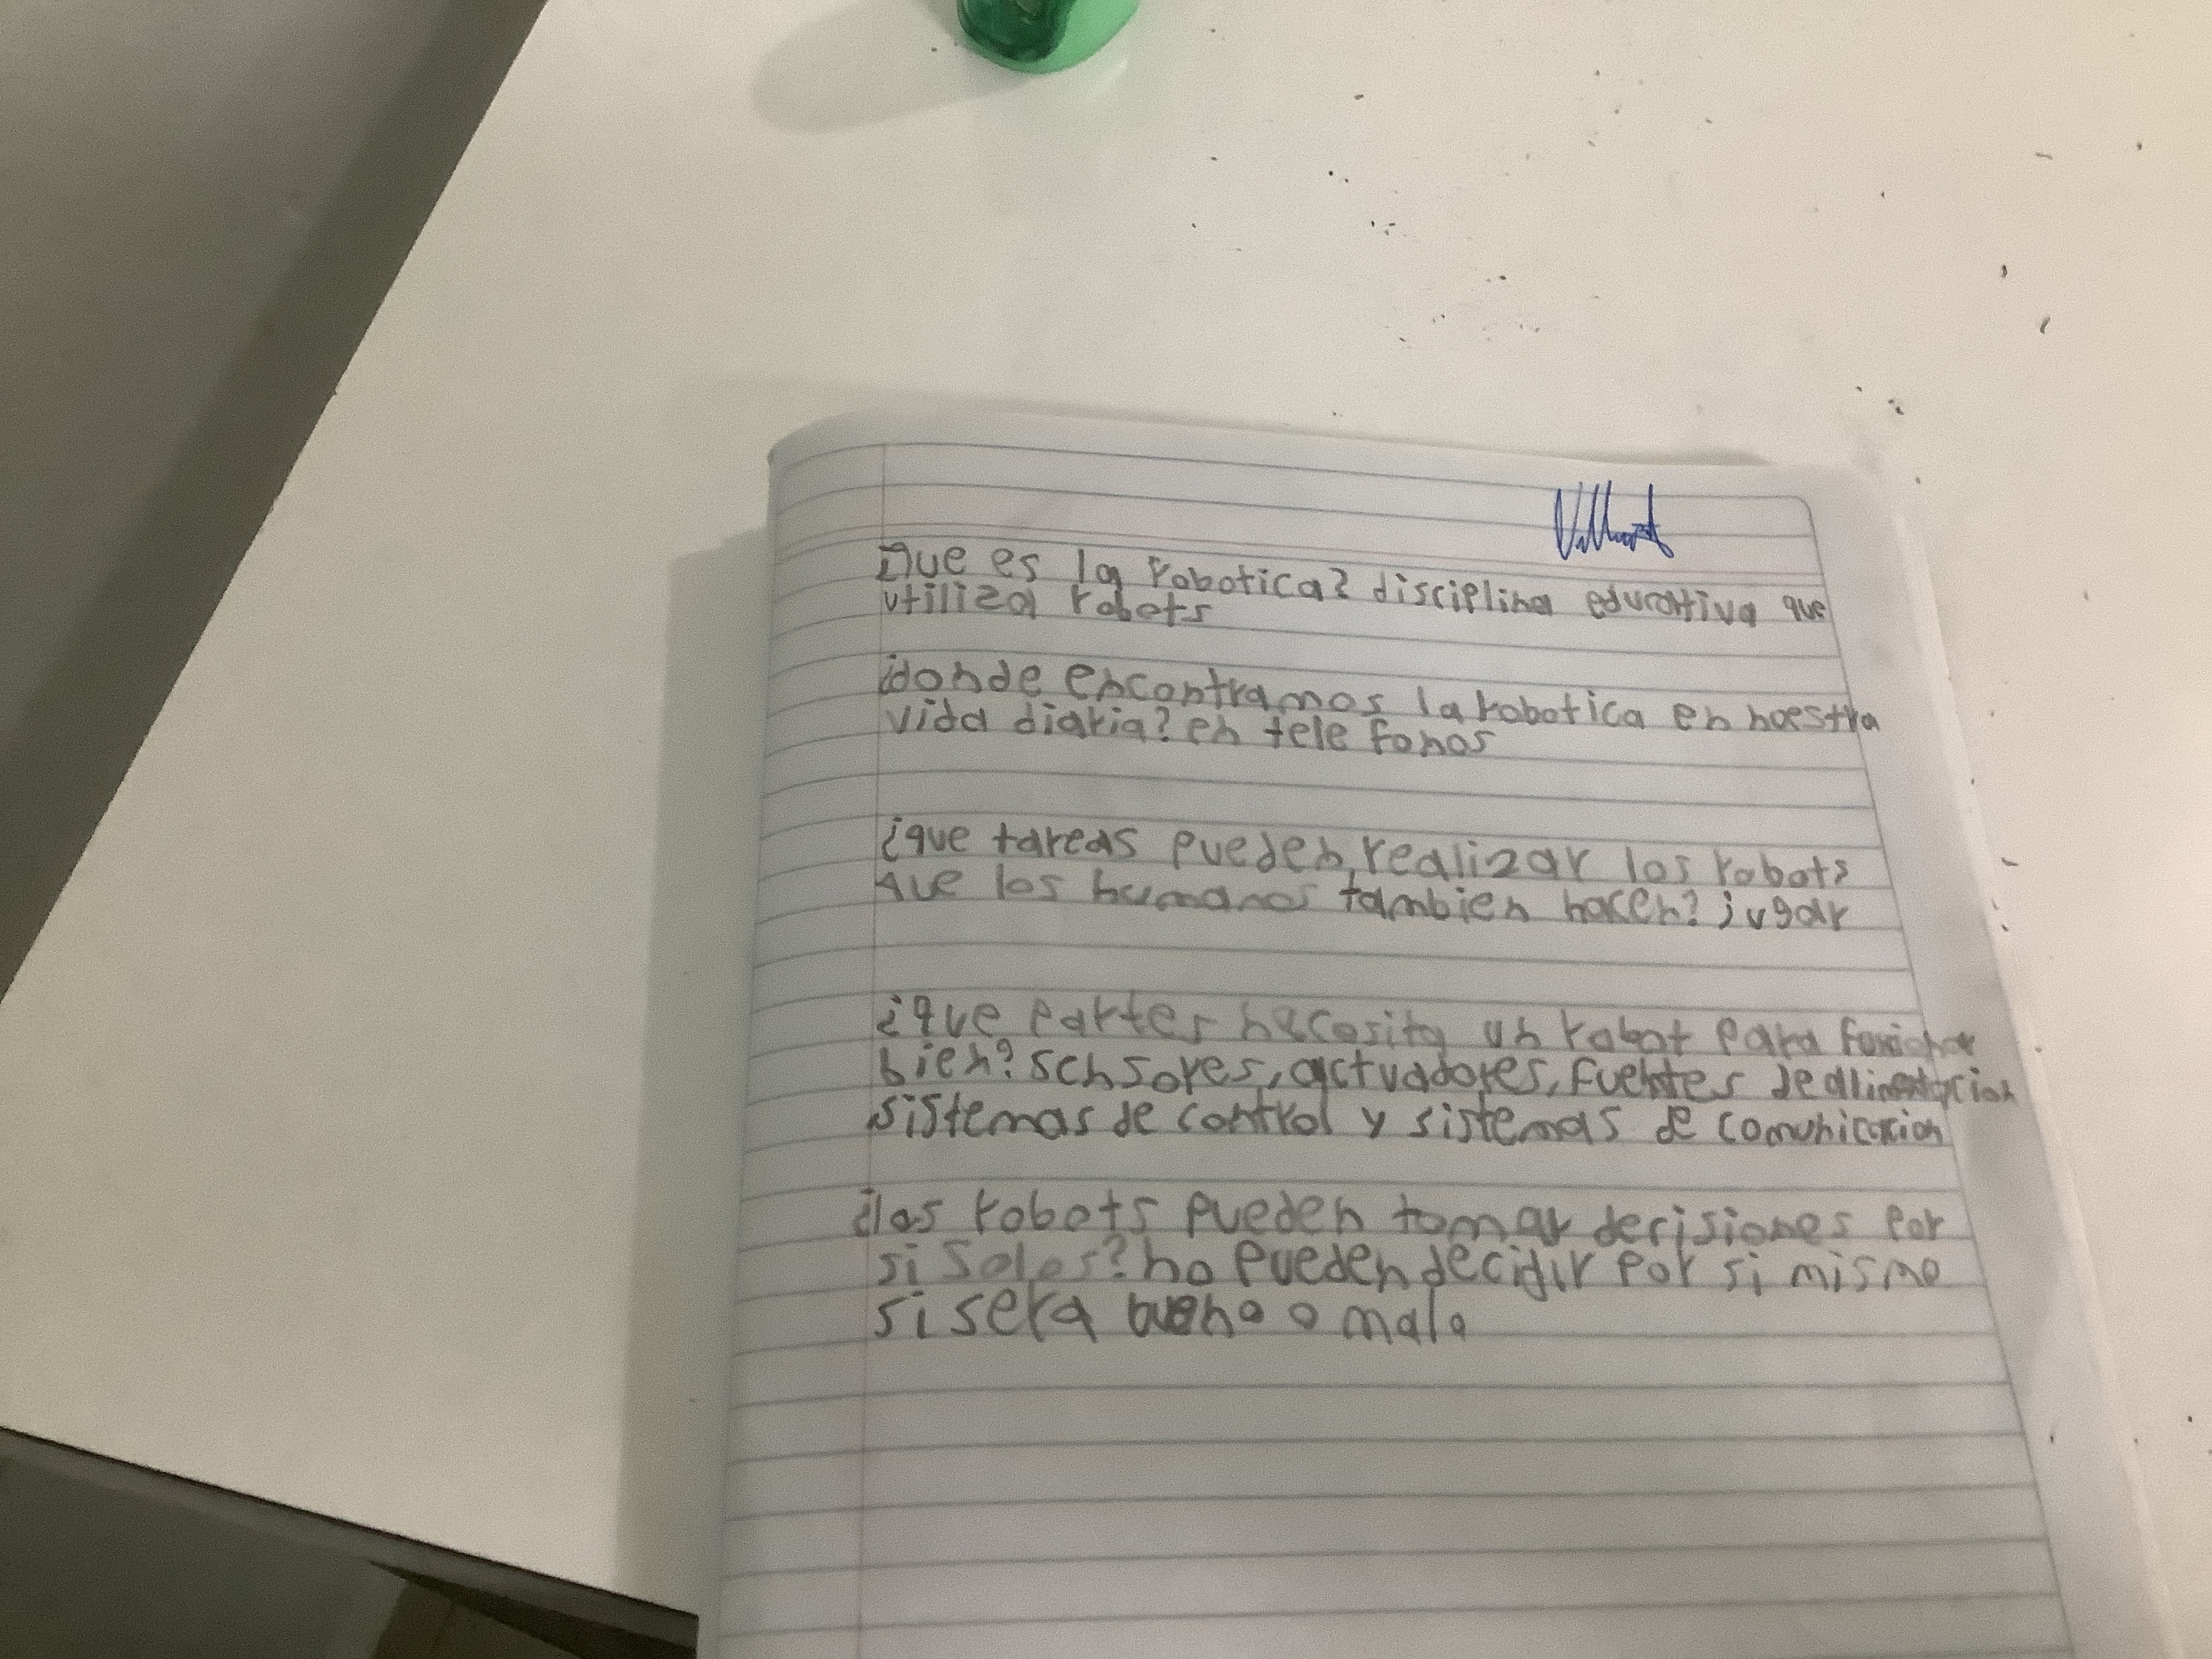 ¿Que es la robotica? disciplina educativa que
utiliza robots
¿donde encontramos la robotica en noestra
vida diaria? en tele fonos
¿que tareas pueden realizar los robots
que los humanos tambien hacen? jugar
¿que partes necesita un robot para
bien? sensores, actuadores, fuentes de alimentacion
sistemas de control y sistemas de comunicacion
¿los robots pueden tomar decisiones por
si solos? no pueden decidir por si mismo
si sera bueno o malo